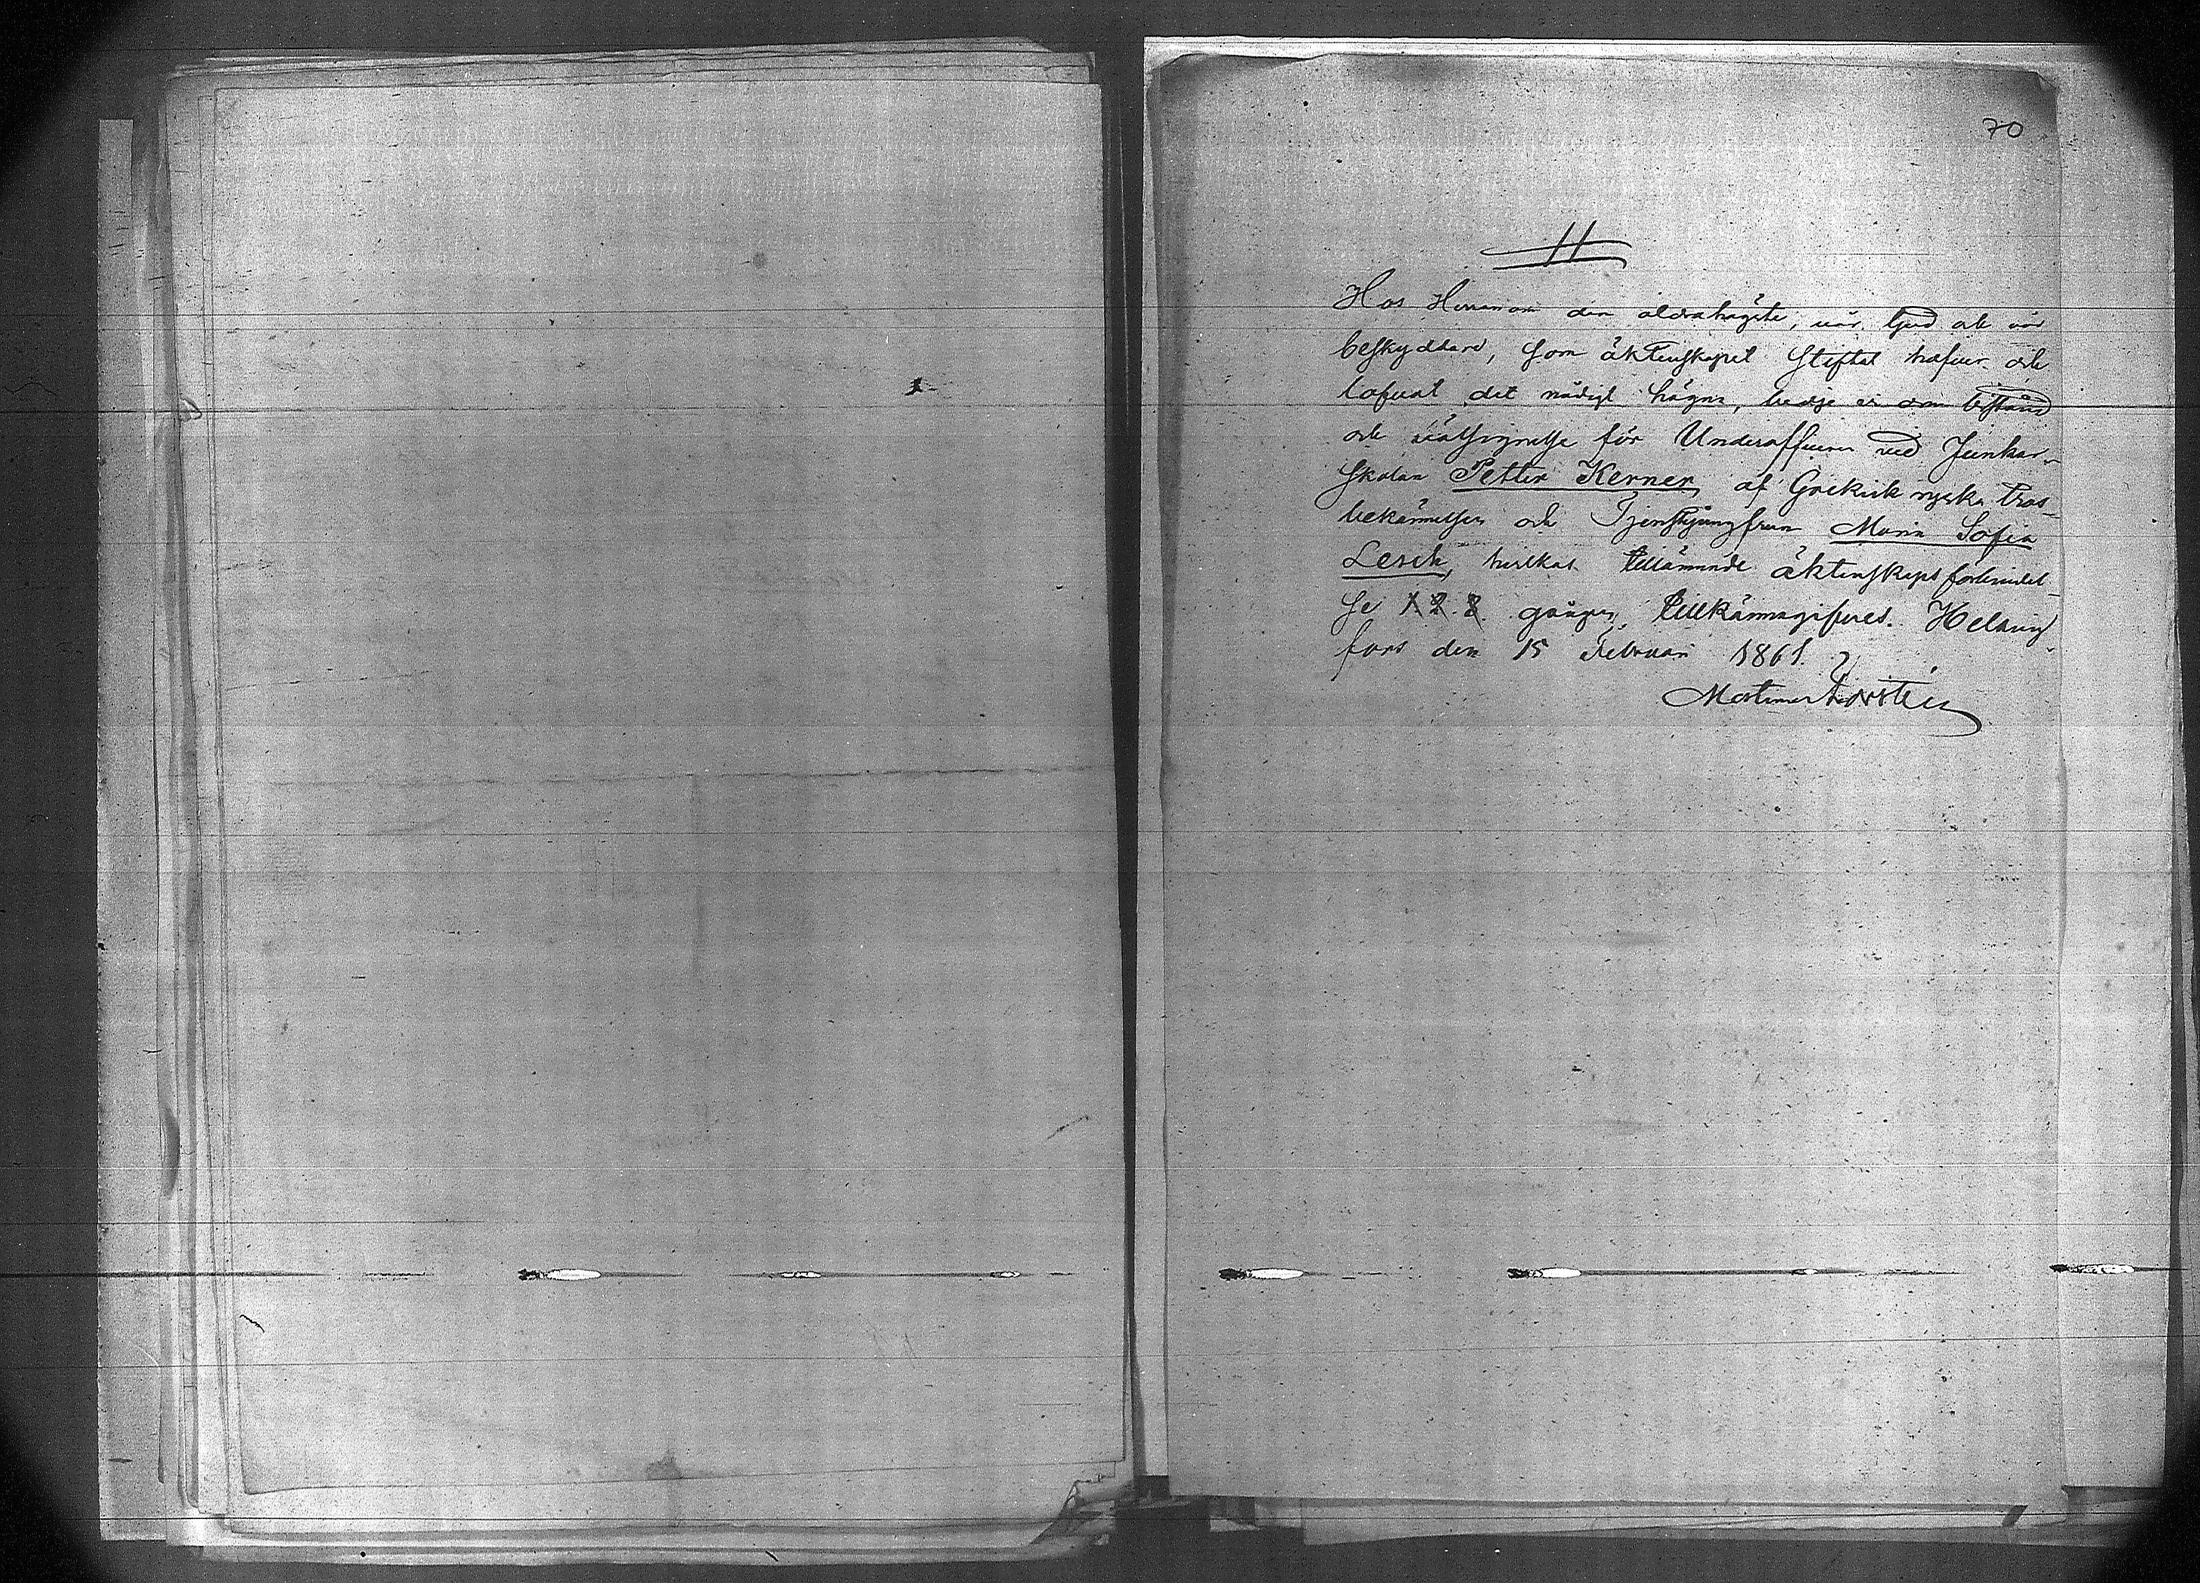 70
11
Hos Herranom den aldrahögste, vår Gud och vår
beskyddare, som äktenskapet stiftat hafver och
lofvat det nådigt hägna, bedje vi om bistånd
och välsignelse för Underofficeren vid Junkar-
skolan Petter Kerner, af Grekisk ryska tros-
bekännelsen och Tjenstejungfrun Maria Sofia
Lesch, hvilkas tillämnade äktenskaps förbindel-
se 1 2 3 gången tillkännagifves. Helsing-
fors den 15 Februari 1861.